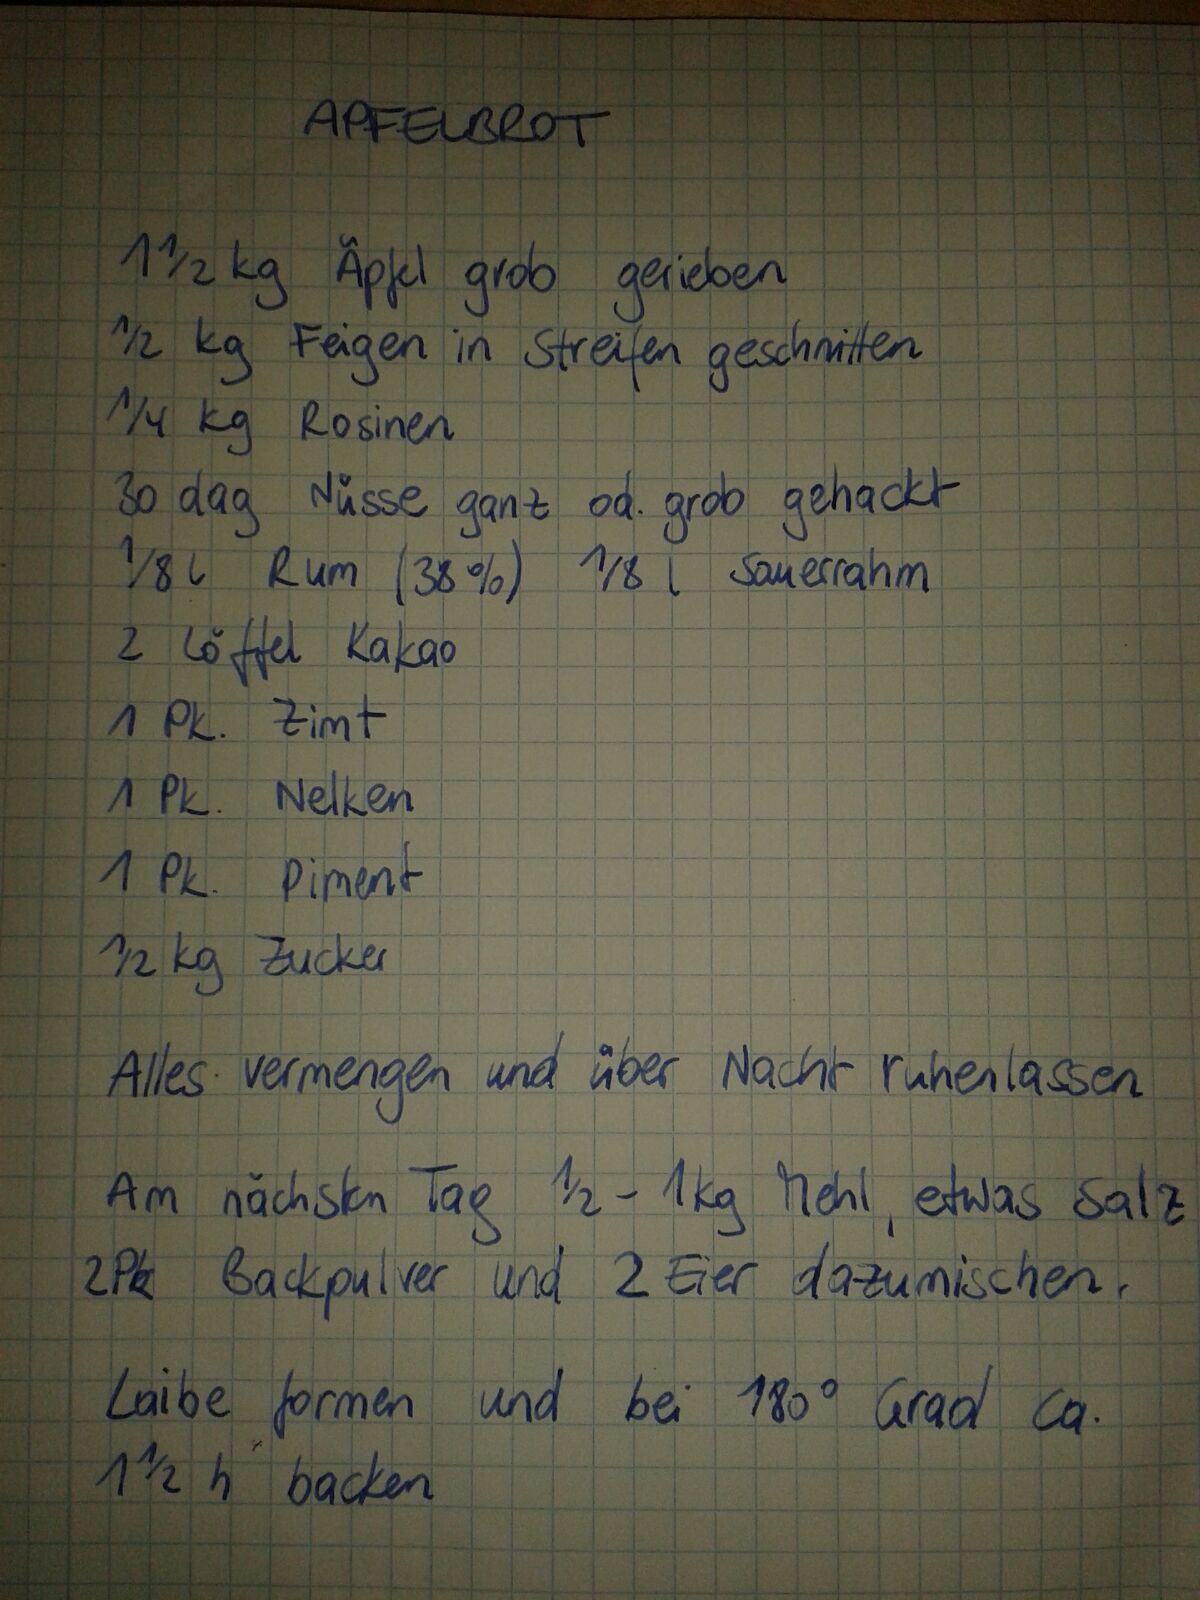 APFELBROT
1 1/2 kg Äpfel grob gerieben
1/2 kg Feigen in Streifen geschnitten
1/4 kg Rosinen
30 dag Nüsse ganz od. grob gehackt
1/8 l Rum (38%) 1/8 l Sauerrahm
2 Löffel Kakao
1 Pk. Zimt
1 Pk. Nelken
1 Pk. Piment
1/2 kg Zucker
Alles vermengen und über Nacht ruhenlassen
Am nächsten Tag 1/2 - 1 kg Mehl, etwas Salz
2 Pk Backpulver und 2 Eier dazumischen.
Laibe formen und bei 180° Grad ca.
1 1/2 h backen